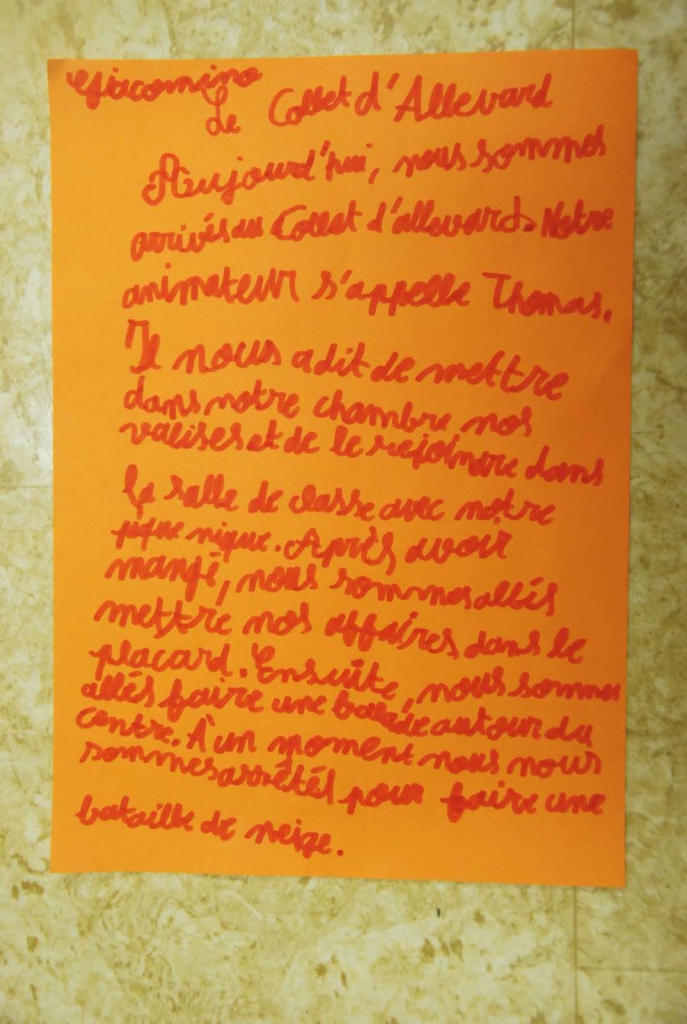 Giacomino
Le Collet d'Allevard
Aujourd'hui, nous sommes
arrivés au Collet d'allevard. Notre
animateur s'appelle Thomas.
Il nous a dit de mettre
dans notre chambre nos
valises et de le rejoindre dans
la salle de classe avec notre
pique nique. Après avoir
mangé, nous sommes allés
mettre nos affaires dans le
placard. Ensuite, nous sommes
allés faire une autour du
centre. À un moment nous nous
sommes arrêtés pour faire une
bataille de neige.